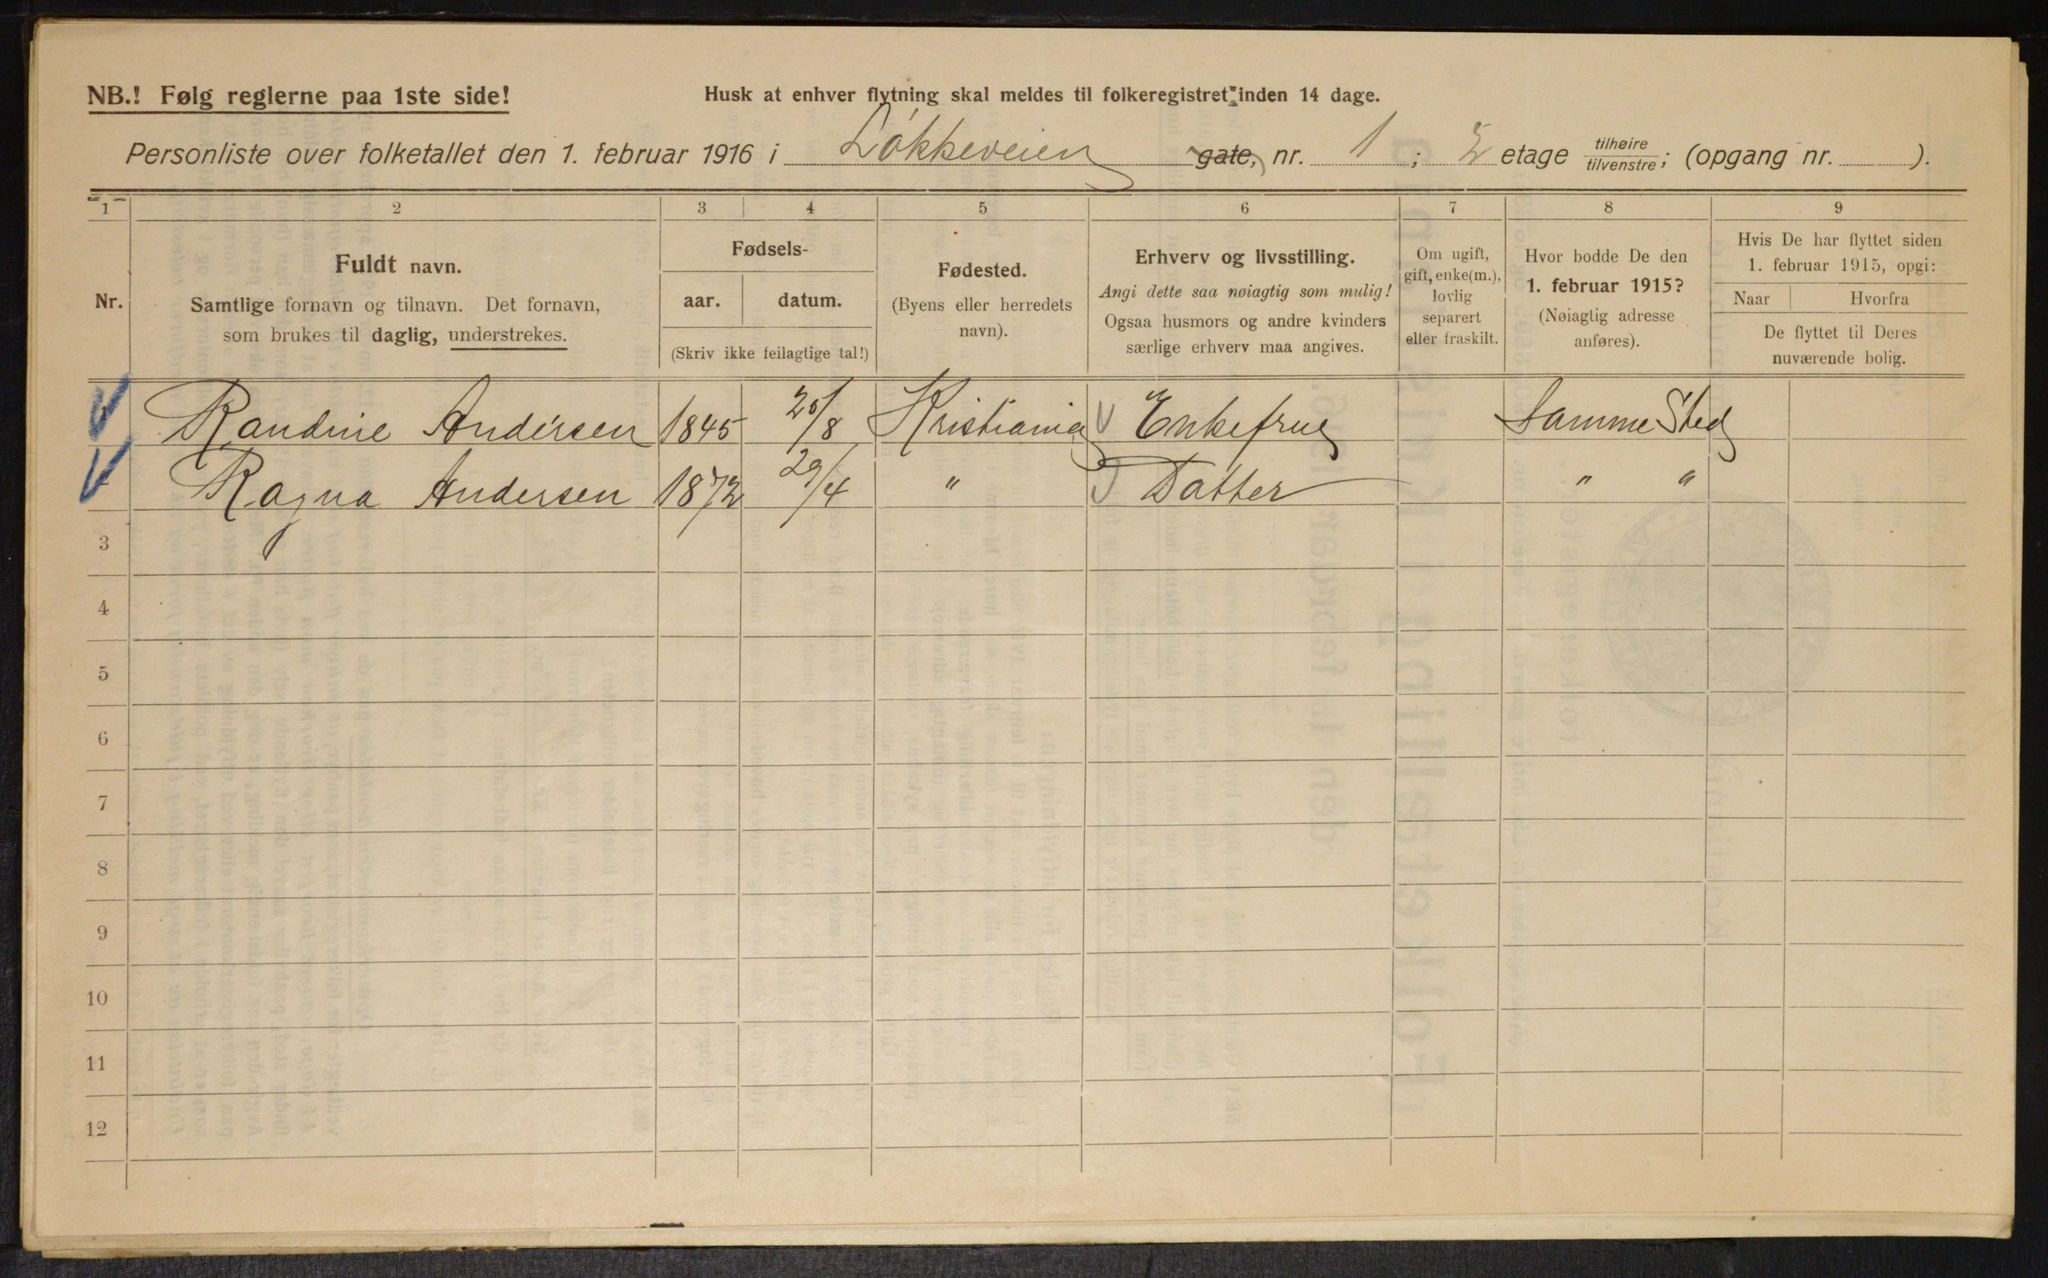 NB.! Følg reglerne paa 1ste side!
Husk at enhver flytning skal meldes til folkeregistret inden 14 dage.
Personliste over folketallet den 1. februar 1916 i Løkkeveien gate, nr. 1; 2 etage tilhøire/tilvenstre; (opgang nr. ).
1 2 3 4 5 6 7 8 9
Nr.
Fuldt navn.
Samtlige fornavn og tilnavn. Det fornavn,
som brukes til daglig, understrekes.
Fødsels-
aar. datum.
(Skriv ikke feilagtige tal!)
Fødested.
(Byens eller herredets
navn).
Erhverv og livsstilling.
Angi dette saa nøiagtig som mulig!
Ogsaa husmors og andre kvinders
særlige erhverv maa angives.
Om ugift,
gift, enke(m.),
lovlig
separert
eller fraskilt.
Hvor bodde De den
1. februar 1915?
(Nøiagtig adresse
anføres).
Hvis De har flyttet siden
1. februar 1915, opgi:
Naar Hvorfra
De flyttet til Deres
nuværende bolig.
Randine Andersen 1845 /8 Kristiania Enkefrue Samme Sted
Ragna Andersen 1872 29/4 " Datter " "
3
4
5
6
7
8
9
10
11
12